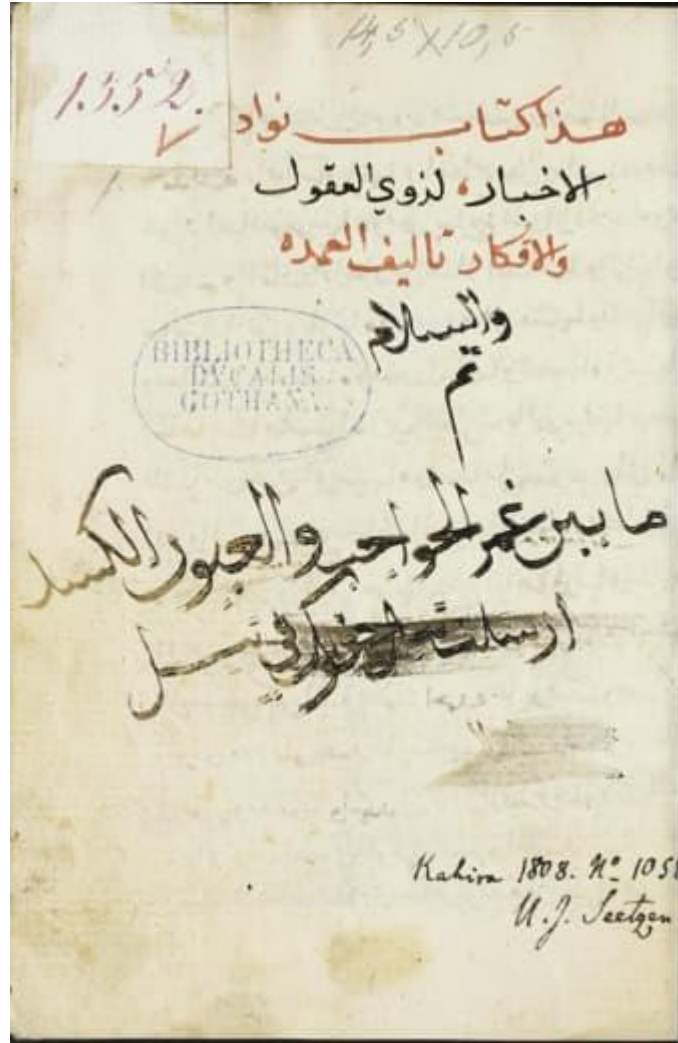 14,5 X 10,5
هذا كتاب نواد
الاخبار لذوي العقول
والافكار تاليف العمده
والسلام
تم
BIBLIOTHECA
DVCALIS
GOTHANA.
ما بين غمز الحواجب والعيون
ارسلت
في
Kahira 1808. No 1058
U. J. Seetzen